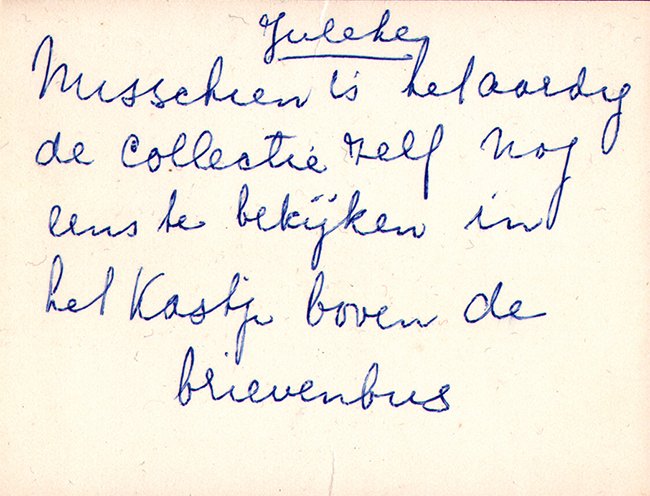 Juleke
Misschien is het aardig
de collectie zelf nog
eens te bekijken in
het Kastje boven de
brievenbus